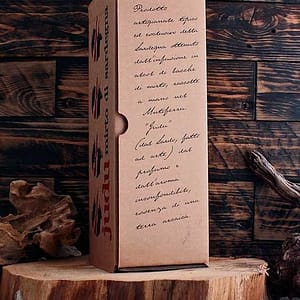 Prodotto
artigianale tipico
ed esclusivo della
Sardegna ottenuto
dall'infusione in
alcol di bacche
di mirto, raccolte
a mano nel
"Judu"
(dal Sardo, fatto
ad arte) dal
profumo e
dall'aroma
inconfondibile,
essenza di una
terra arcaica.
judu
mirto di sardegna